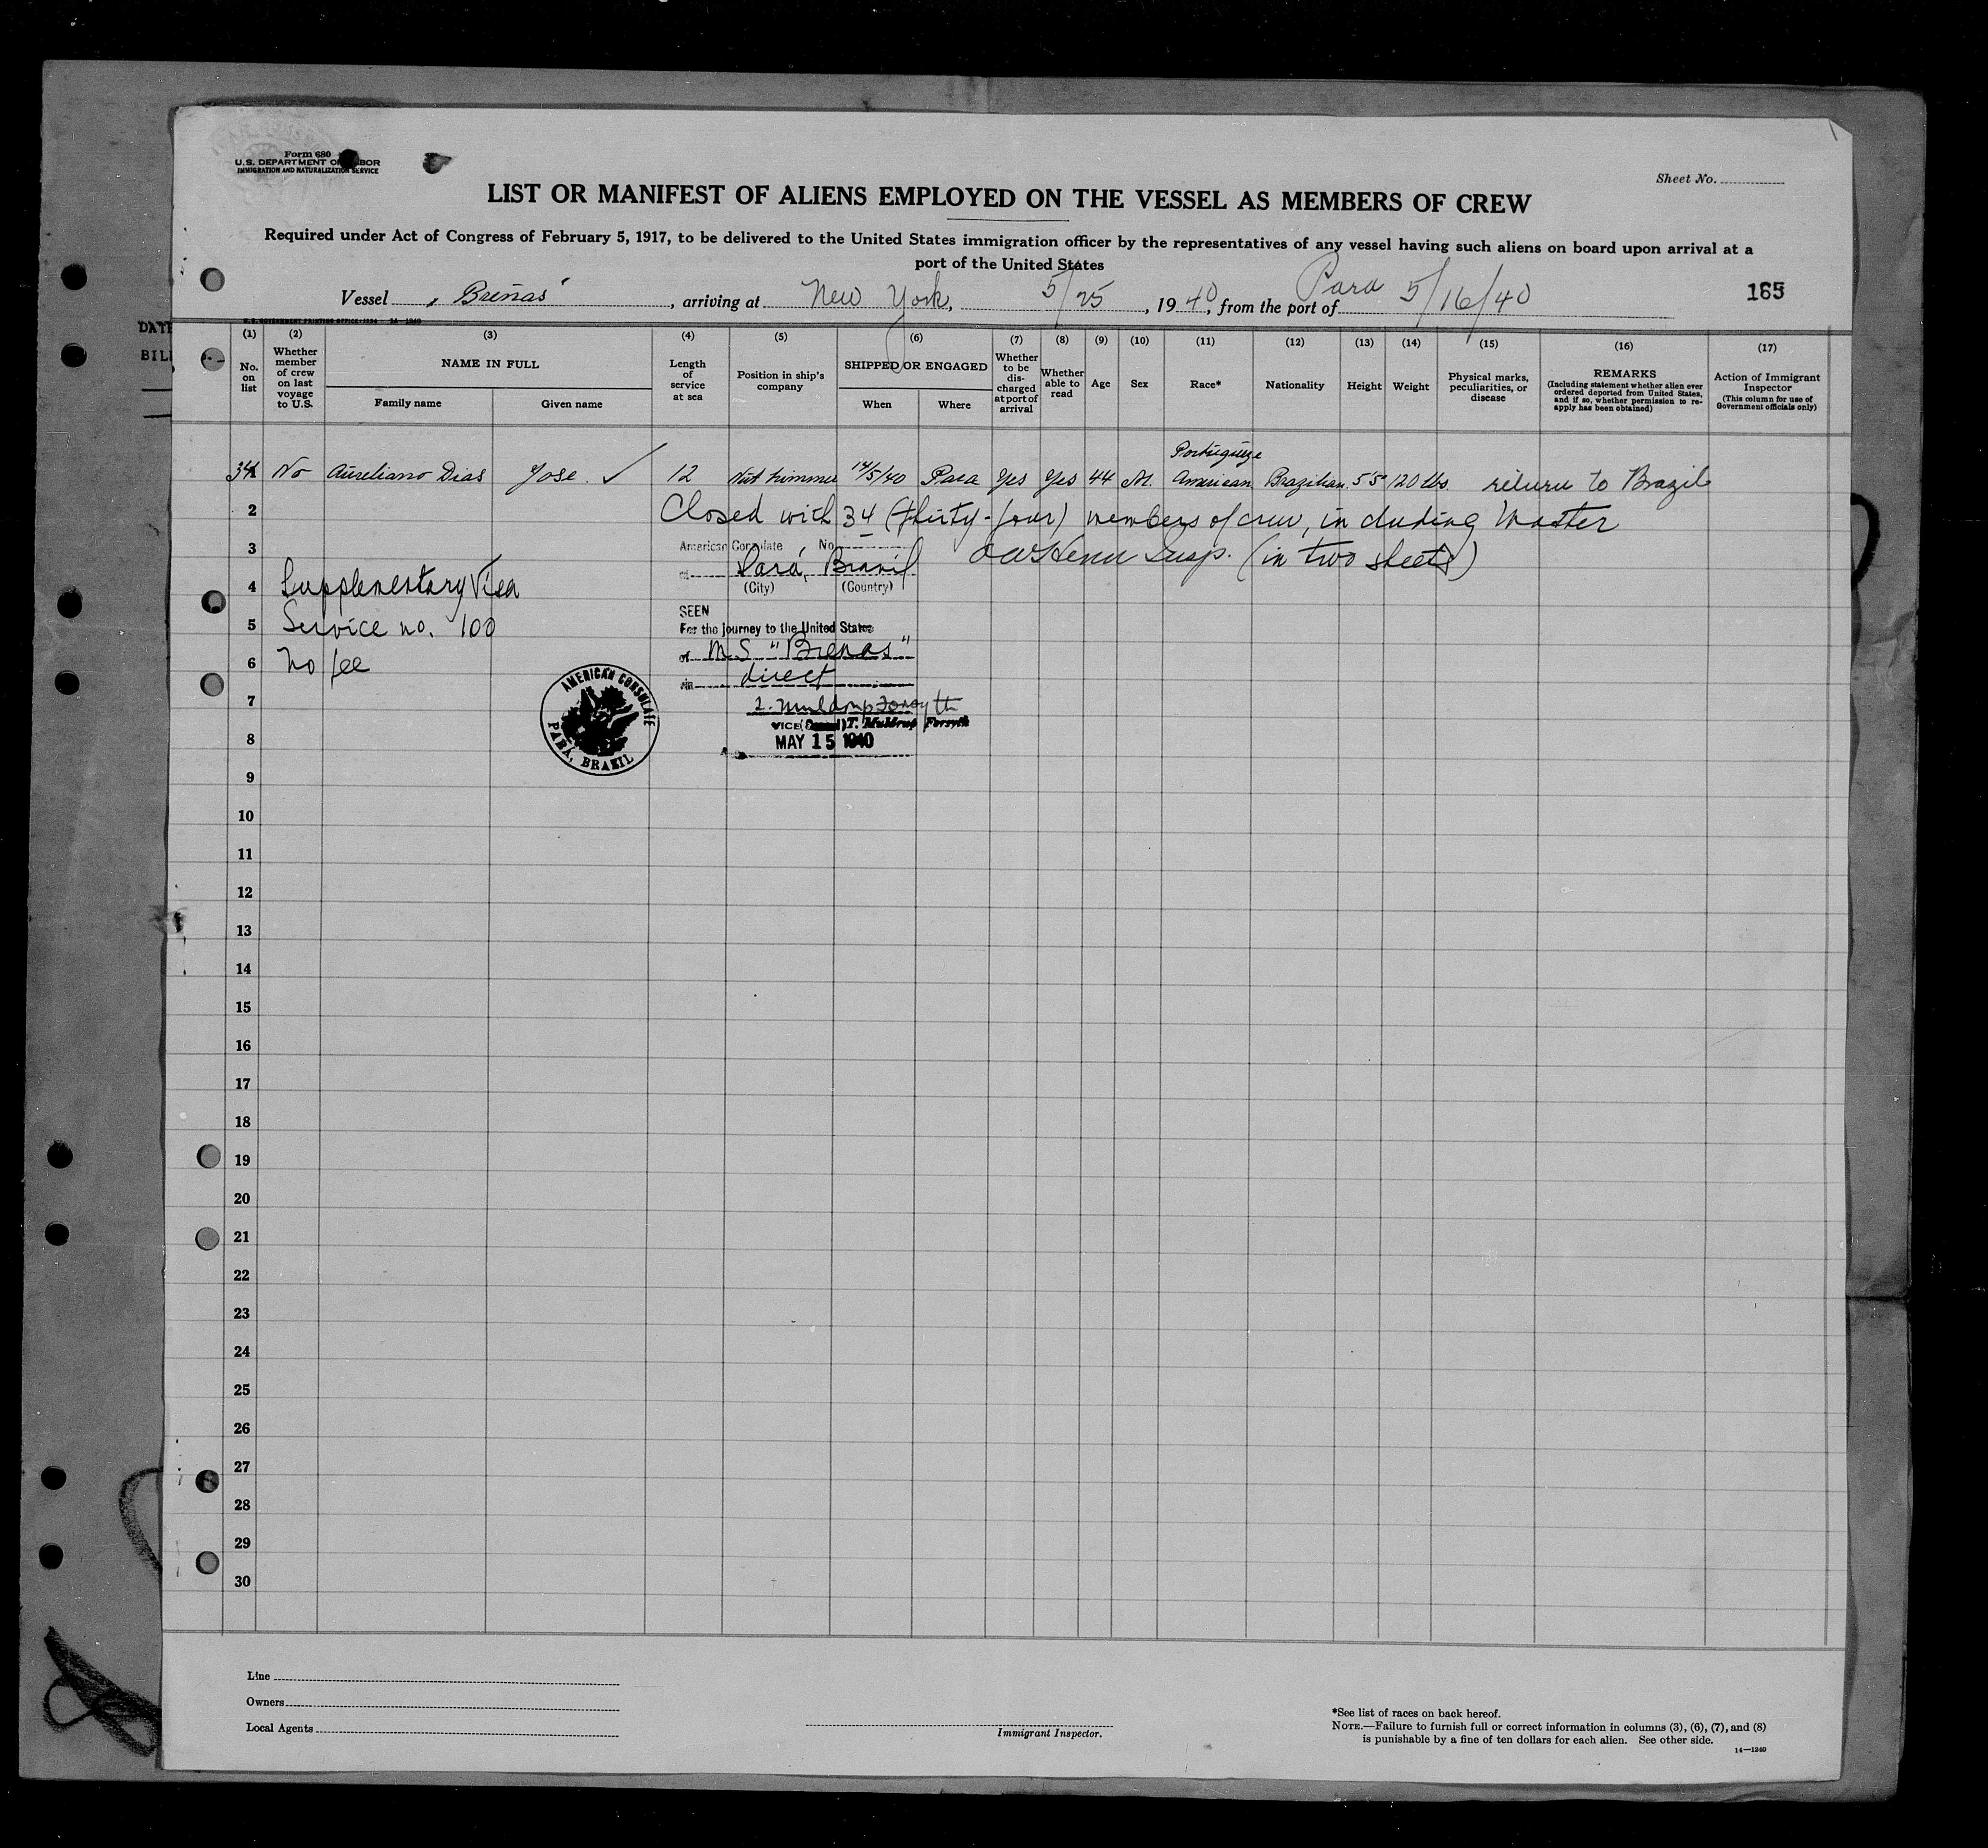 Form 680
U.S. DEPARTMENT OF LABOR
IMMIGRATION AND NATURALIZATION SERVICE
Sheet No.
LIST OR MANIFEST OF ALIENS EMPLOYED ON THE VESSEL AS MEMBERS OF CREW
Required under Act of Congress of February 5, 1917, to be delivered to the United States immigration officer by the representatives of any vessel having such aliens on board upon arrival at a
port of the United States
Vessel "Breñas", arriving at New York, 5/25, 1940, from the port of Para 5/16/40
165
DATE
BILL
U.S. GOVERNMENT PRINTING OFFICE
(1) No. on list
(2) Whether member of crew on last voyage to U.S.
(3) NAME IN FULL
Family name
Given name
(4) Length of service at sea
(5) Position in ship's company
(6) SHIPPED OR ENGAGED
When
Where
(7) Whether to be discharged at port of arrival
(8) Whether able to read
(9) Age
(10) Sex
(11) Race*
(12) Nationality
(13) Height
(14) Weight
(15) Physical marks, peculiarities, or disease
(16) REMARKS
(Including statement whether alien ever ordered deported from United States, and if so, whether permission to reapply has been obtained)
(17) Action of Immigrant Inspector
(This column for use of Government officials only)
Portugueze
34 No Aureliano Dias Jose 12 Nut trimmer 14/5/40 Para Yes Yes 44 M. American Brazilian 5 5" 120 lbs. return to Brazil
2 Closed with 34 (thirty-four) members of crew, including Master
American Consulate No.
3 Insp. (in two sheets)
at Pará, Brazil
(City) (Country)
4 Supplementary Visa
SEEN
5 Service no. 100
For the journey to the United States
6 No fee
of M.S "Brenas"
via direct
AMERICAN CONSULATE
PARÁ, BRAZIL
7 T. Muldrup Forsyth
VICE Consul T. Muldrup Forsyth
8 MAY 15 1940
9
10
11
12
13
14
15
16
17
18
19
20
21
22
23
24
25
26
27
28
29
30
Line
Owners
Local Agents
Immigrant Inspector.
*See list of races on back hereof.
NOTE.—Failure to furnish full or correct information in columns (3), (6), (7), and (8)
is punishable by a fine of ten dollars for each alien. See other side.
14—1240